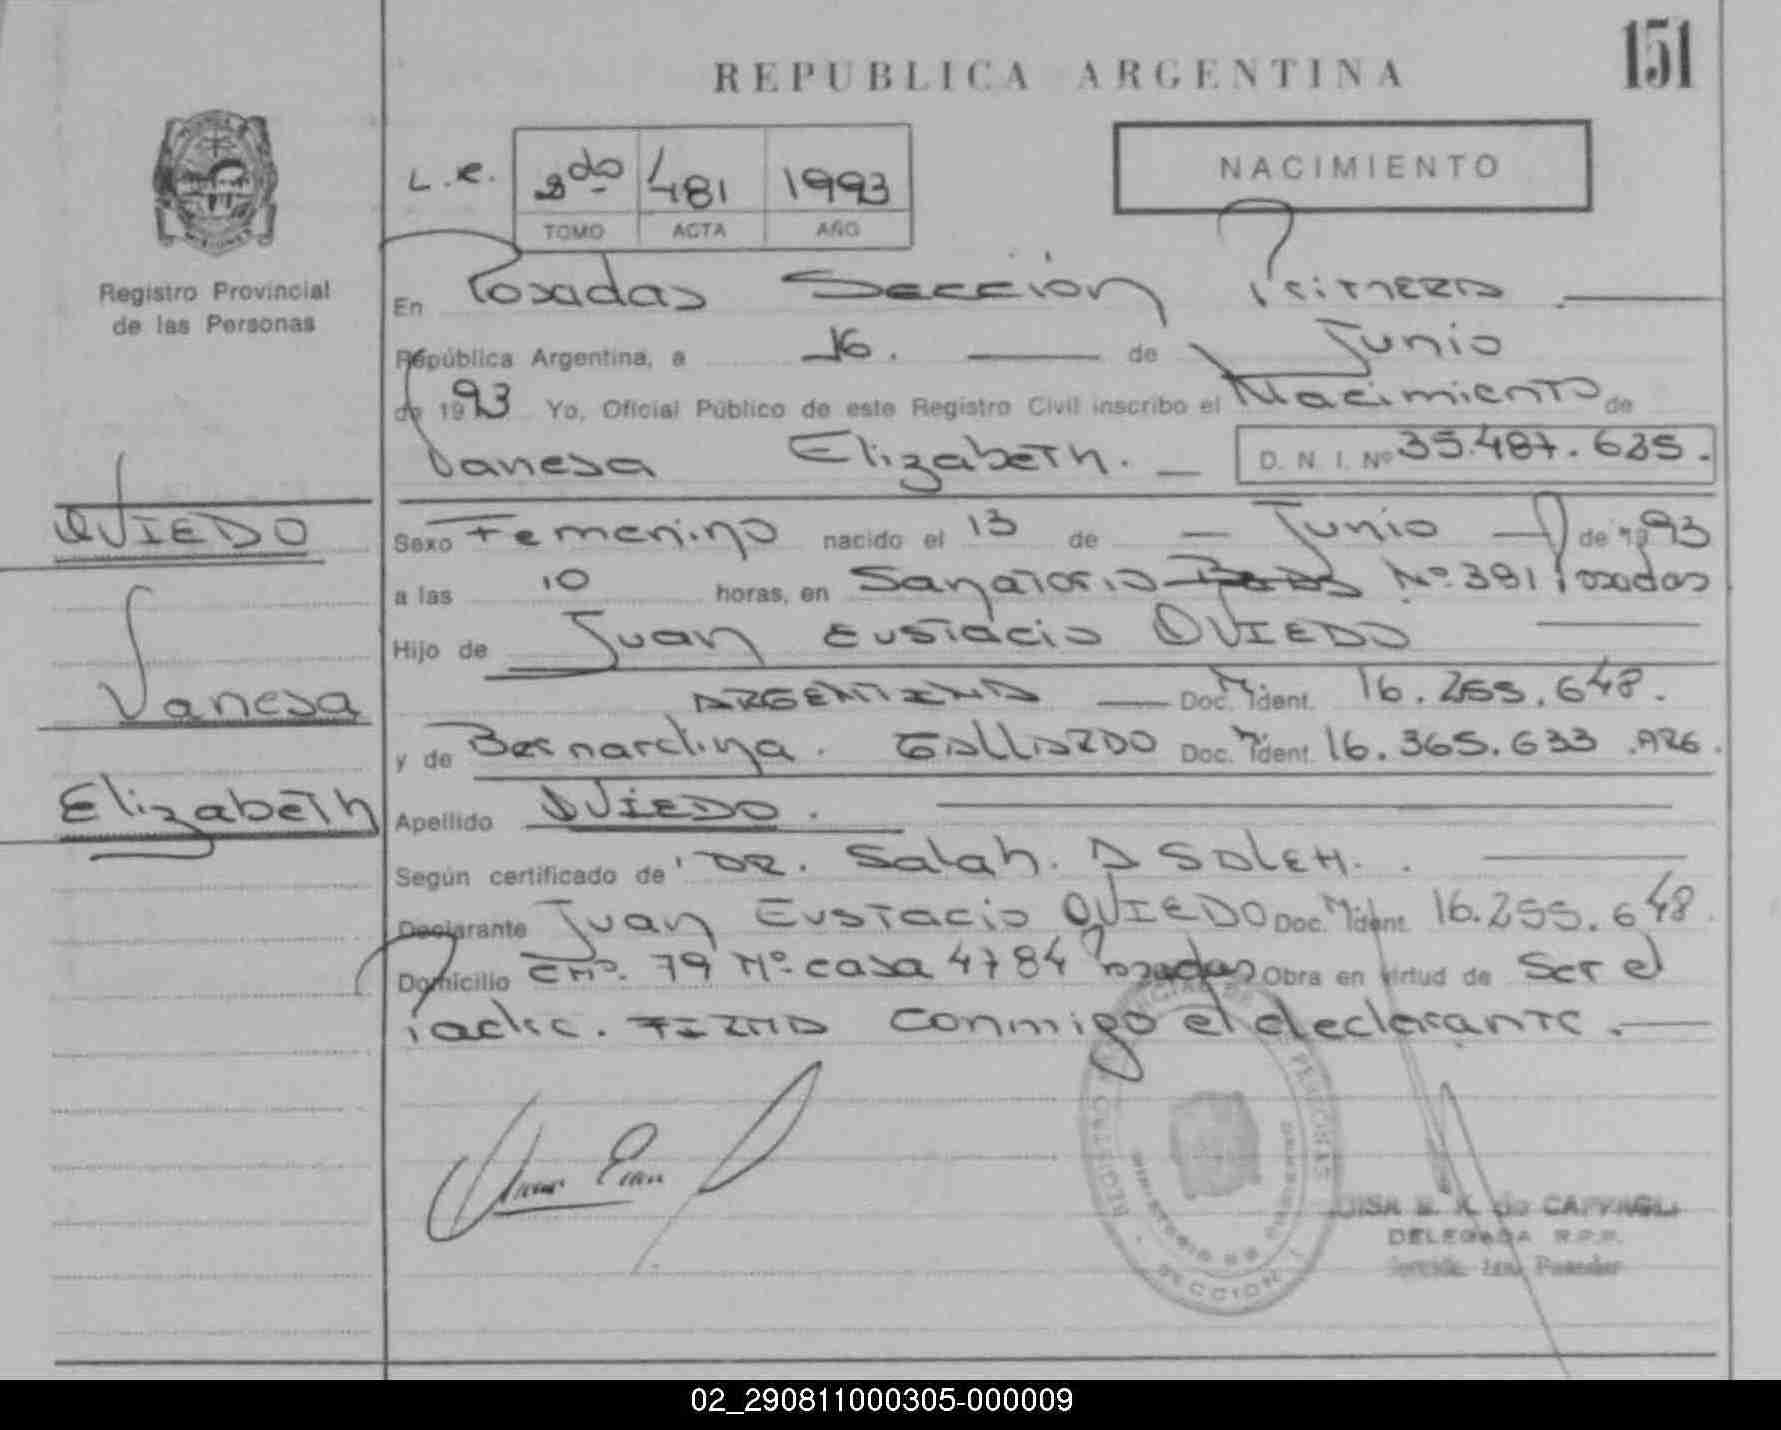 151
REPUBLICA ARGENTINA
NACIMIENTO
L.E. 2do 481 1993
TOMO ACTA AÑO
Registro Provincial
de las Personas
En Posadas Sección Primera
República Argentina, a 16. de Junio
de 1993 Yo, Oficial Público de este Registro Civil inscribo el Nacimiento de
Vanesa Elizabeth. D. N. I. Nº 35.487.635.
OVIEDO
Vanesa
Elizabeth
Sexo Femenino nacido el 13 de Junio de 1993
a las 10 horas, en Sanatorio Nº 381 Posadas
Hijo de Juan Eustacio OVIEDO
ARGENTINO Doc. M. Ident. 16.255.648.
y de Bernardina. GALLARDO Doc. M. Ident. 16.365.633 .ARG.
Apellido OVIEDO.
Según certificado de DR. Salah.
Declarante Juan Eustacio OVIEDO Doc. M. Ident. 16.255.648
Domicilio CHº. 79 Nº casa 4784 Posadas Obra en virtud de Ser el
Padre. FIRMA Conmigo el declarante.
SECCION
DELEGADA R.P.P.
02_290811000305-000009